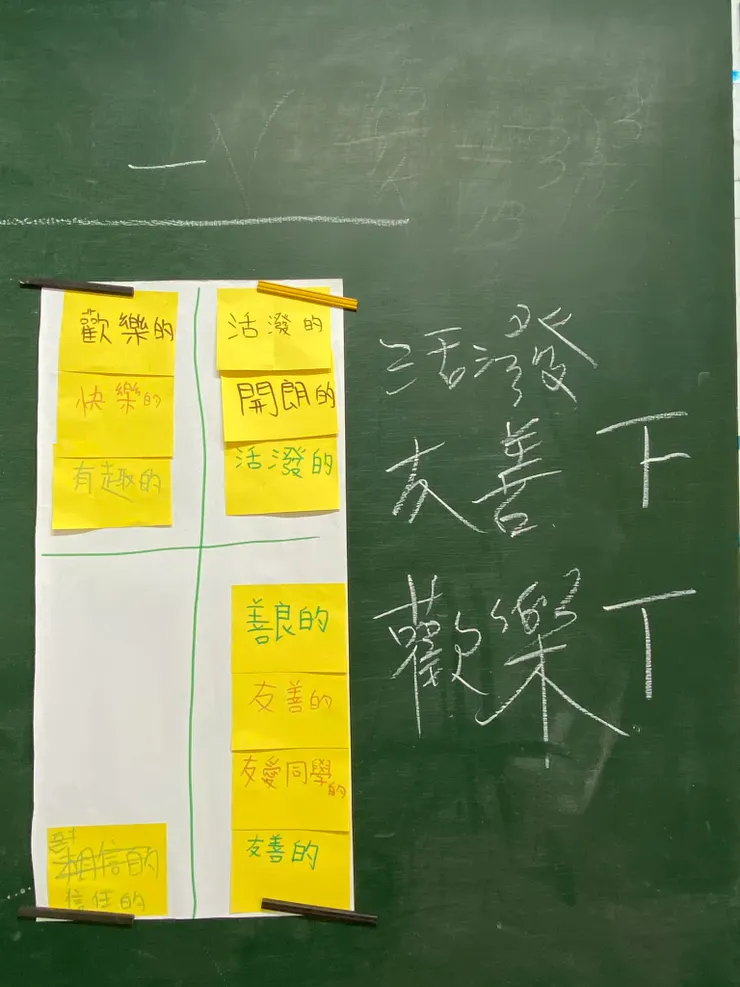 歡樂的
快樂的
有趣的
活潑的
開朗的
活潑的
善良的
友善的
友愛同學的
友善的
相信的
信任的
活潑
友善 下
歡樂 丁